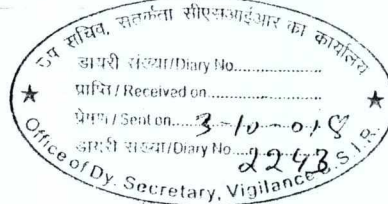 उप सचिव, सतर्कता सीएसआईआर का कार्यालय
डायरी संख्या/Diary No.............
प्राप्ति / Received on.............
प्रेषण / Sent on.... 3-10-018
डायरी संख्या/Diary No.... 2243
★ ★
Office of Dy. Secretary, Vigilance C.S.I.R.